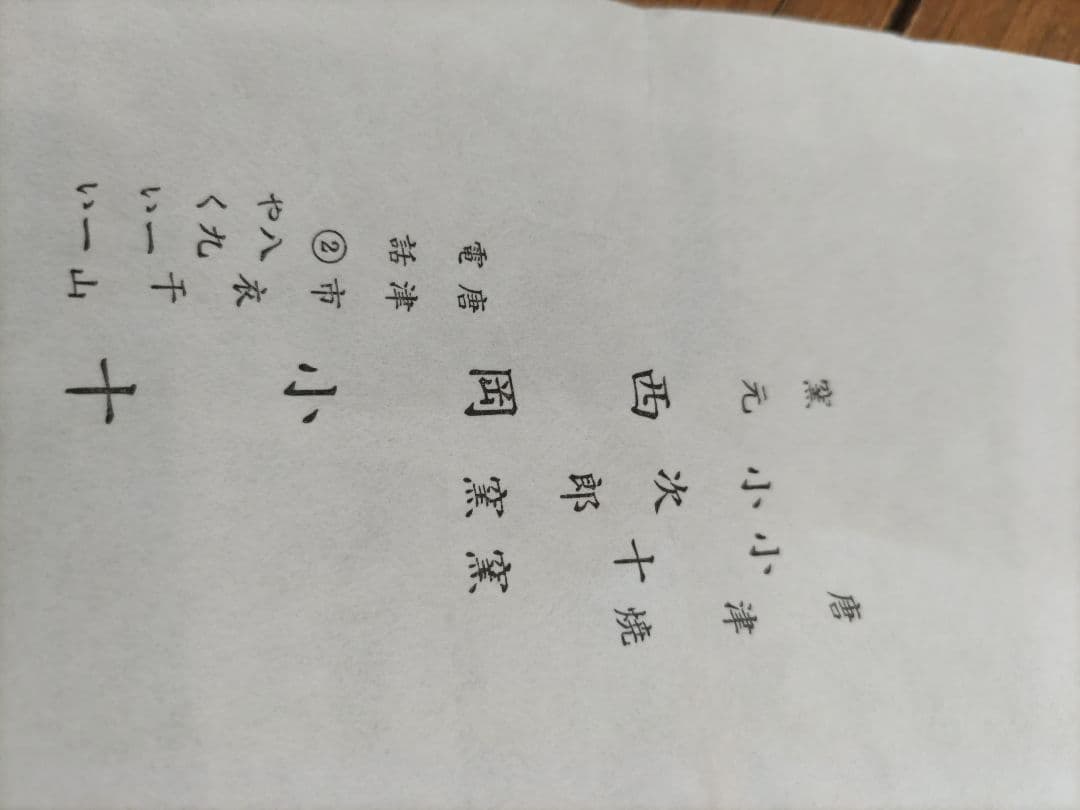 唐津焼
小十窯
小次郎窯
窯元 西岡小十
唐津市衣干山
電話②八九一一
やくいい